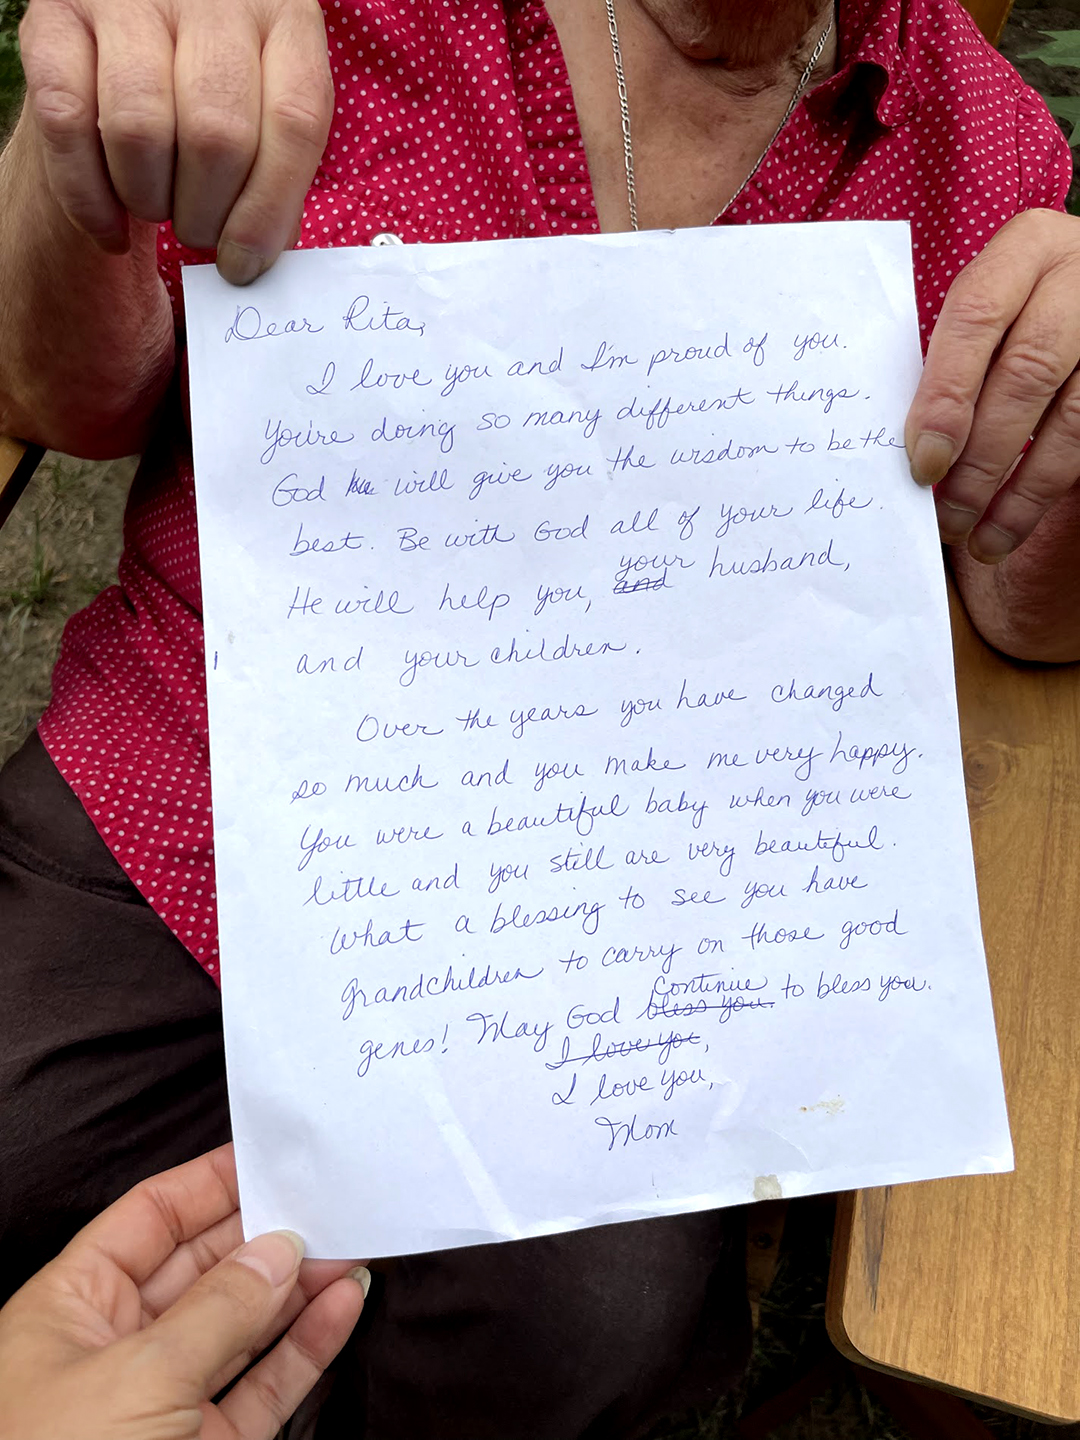 Dear Rita,
I love you and I'm proud of you.
You're doing so many different things.
God will give you the wisdom to be the
best. Be with God all of your life.
He will help you, and your husband,
and your children.
Over the years you have changed
so much and you make me very happy.
You were a beautiful baby when you were
little and you still are very beautiful.
What a blessing to see you have
grandchildren to carry on those good
genes! May God bless you. continue to bless you.
I love you,
I love you,
Mom